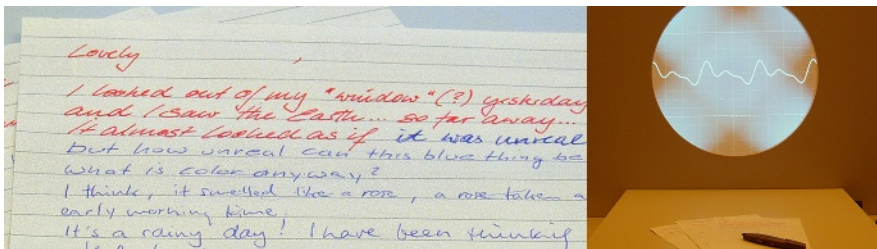 Lovely
I looked out of my "window"(?) yesterday
and I saw the Earth... so far away...
It almost looked as if it was unreal
but how unreal can this blue thing be
what is color anyway?
I think, it smelled like a rose, a rose taken a
early morning time,
It's a rainy day! I have been thinking